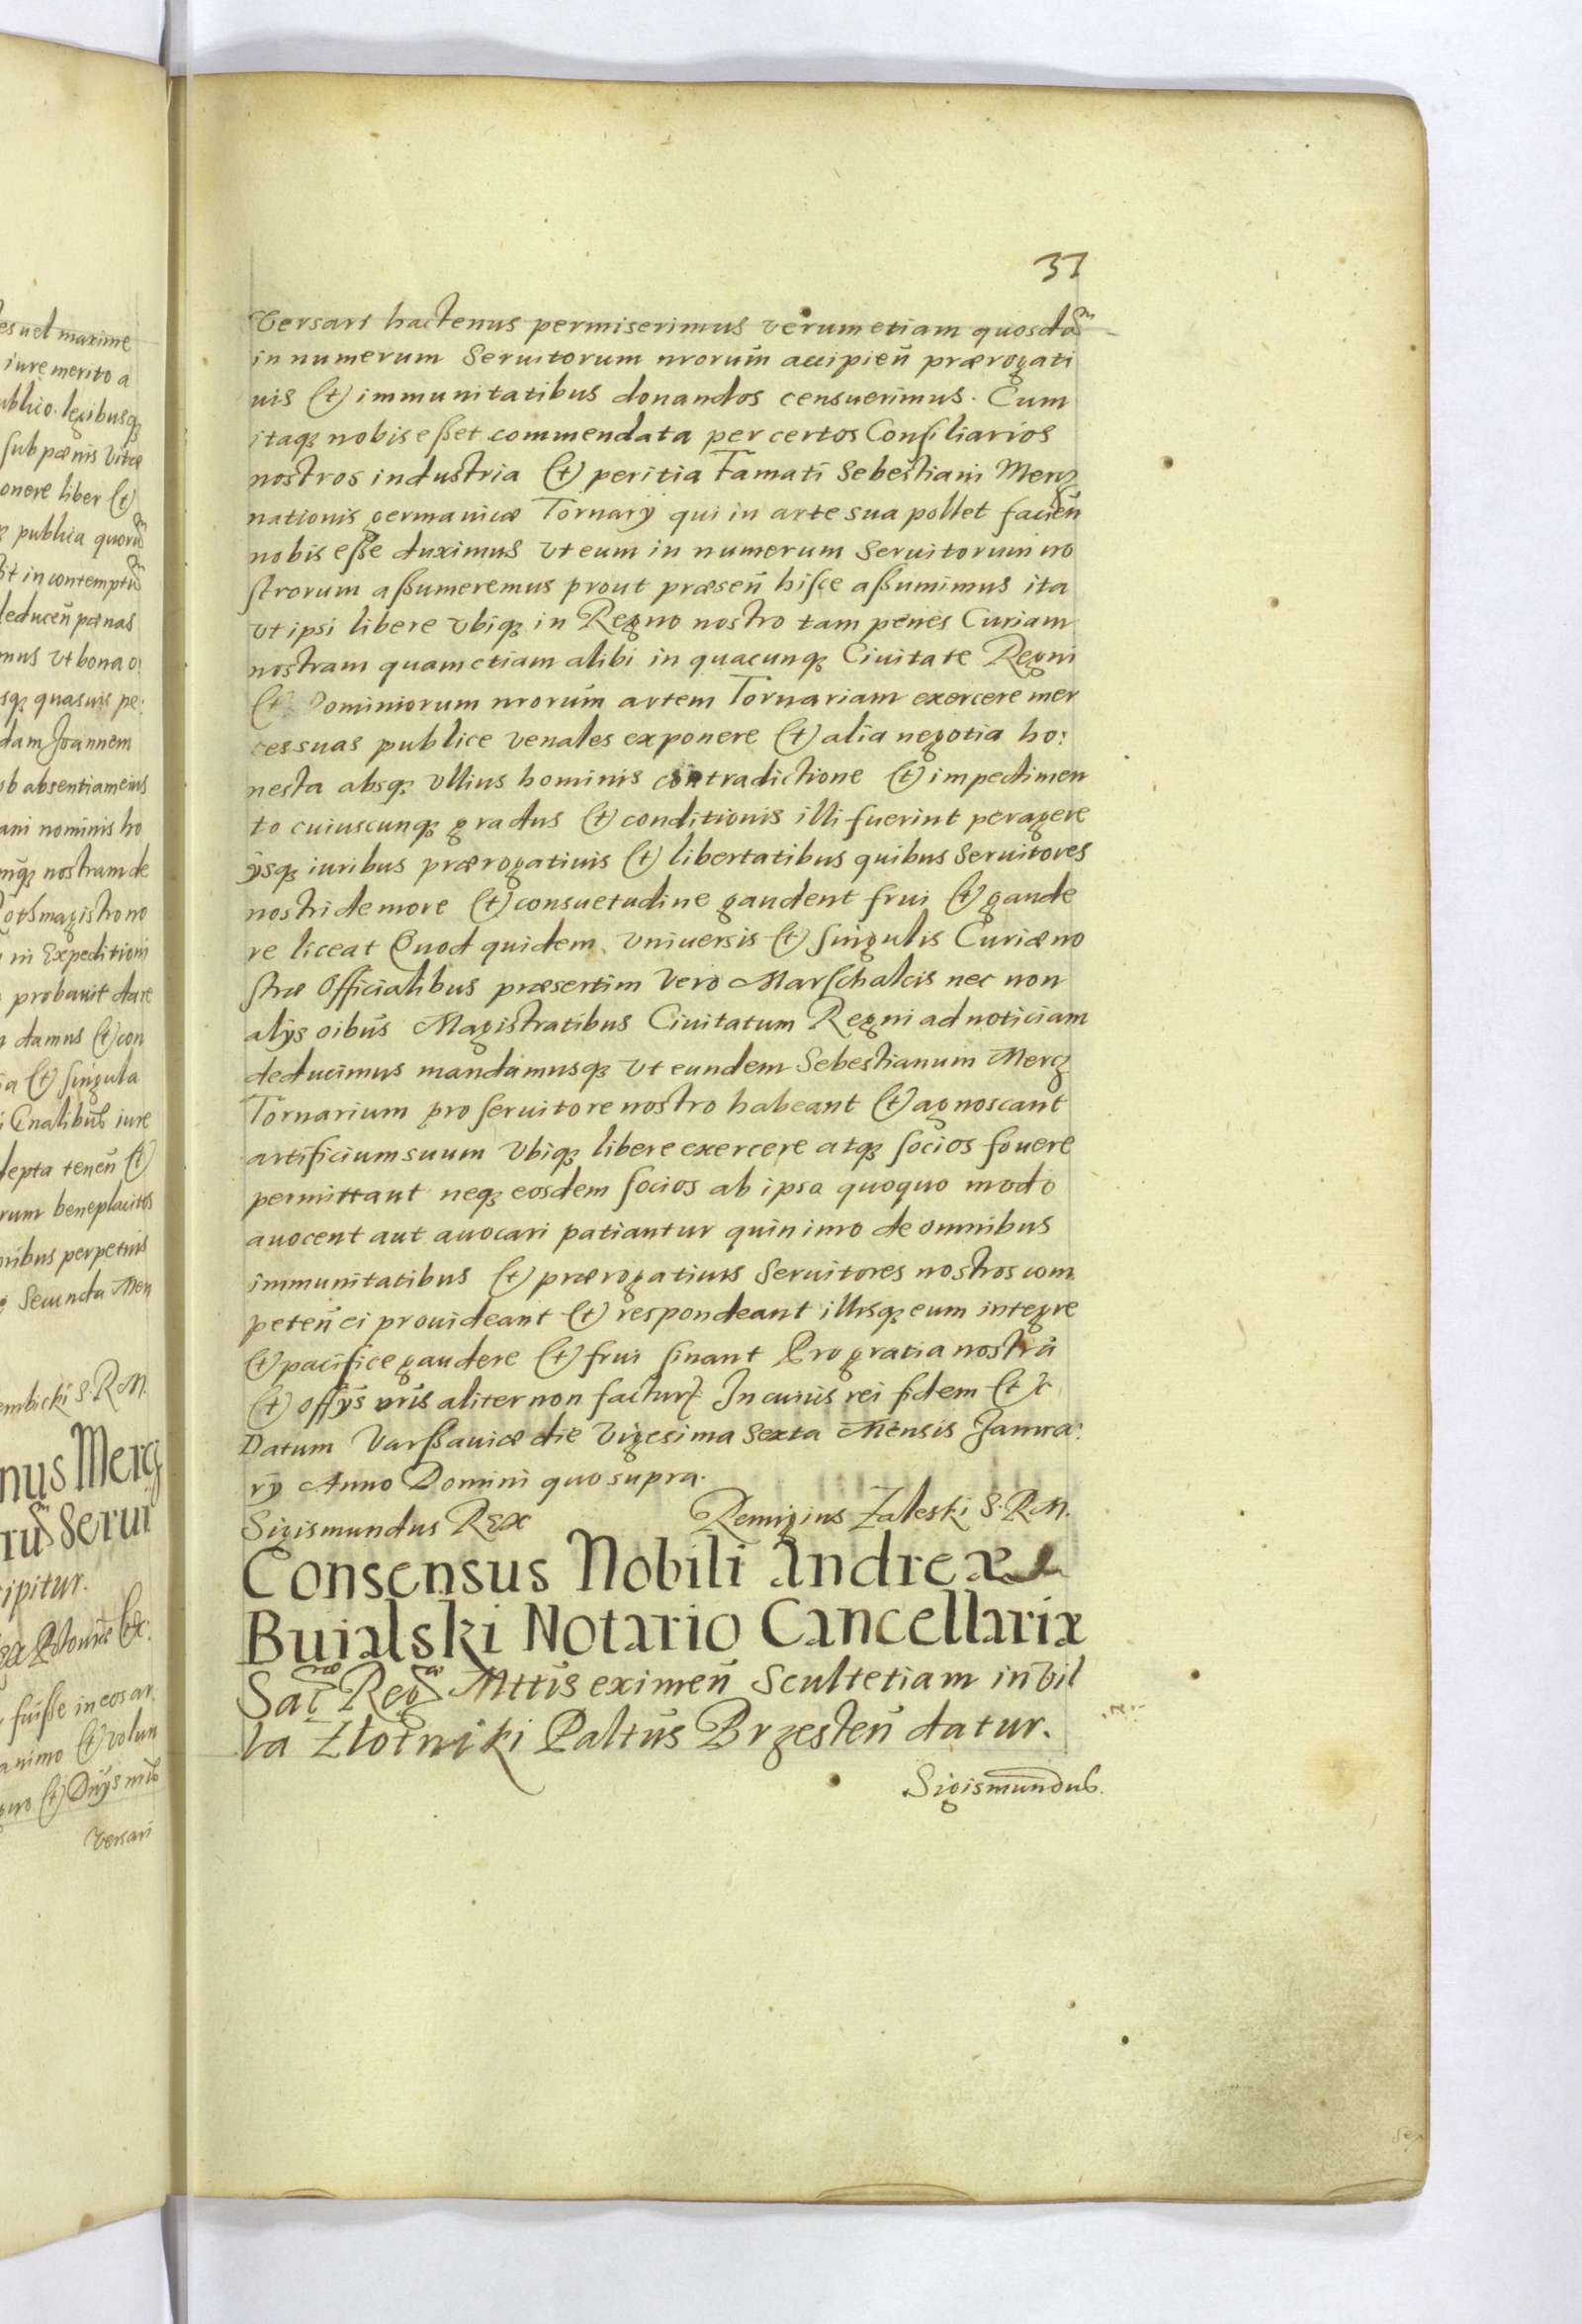 es uel maxime
iure merito a
ublico legibusq;
sub pænis vitæ
onere liber et
publica quorũ
it in contemptũ
deducen̄ pænas
mus vt bona o:
sq; quasuis pe:
dam Joannem
ob absentiam eius
ani nominis ho
mq; nostram de
Rothmagistro no
in Expeditioni
probauit dare
damus et con
ia et singula
iure
depta tenen̄ et
rum beneplacitis
nibus perpetuis
secunda Men
embicki S. R M.
nus Mercz
rũ Serui
cipitur.
ex Poloniæ etc.
fuisse in eos ar
animo et volun
gno et Dnijs nris
versari
31
versari hactenus permiserimus verum etiam quosdã
in numerum Seruitorum nrorum accipien̄ prærogati
uis et immunitatibus donandos censuerimus. Cum
itaq; nobis esset commendata per certos Consiliarios
nostros industria et peritia Famati Sebestiani Mercz
nationis germanicæ Tornarÿ qui in arte sua pollet facien̄
nobis esse duximus vt eum in numerum seruitorum no
strorum assumeremus prout præsen̄ hisce assumimus ita
vt ipsi libere vbiq; in Regno nostro tam penes Curiam
nostram quam etiam alibi in quacunq; Ciuitate Regni
et Dominiorum nrorum artem Tornariam exercere mer
ces suas publice venales exponere et alia negotia ho:
nesta absq; vllius hominis contradictione et impedimen
to cuiuscunq; gradus et conditionis illi fuerint peragere
ÿsq; iuribus prærogatiuis et libertatibus quibus seruitores
nostri de more et consuetudine gaudent frui et gaude
re liceat Quod quidem vniuersis et singulis Curiæ no
stræ Officialibus præsertim vero Marschalcis nec non
alÿs oibus Magistratibus Ciuitatum Regni ad noticiam
deducimus mandamusq; vt eundem Sebestianum Mercz
Tornarium pro seruitore nostro habeant et agnoscant
artificium suum vbiq; libere exercere atq; socios fouere
permittant neq; eosdem socios ab ipso quoquo modo
auocent aut auocari patiantur quinimo de omnibus
immunitatibus et prærogatiuis seruitores nostros com
peten̄ ei prouideant et respondeant illisq; eum integre
et pacifice gaudere et frui sinant Pro gratia nostra
et offÿs vris aliter non facturi In cuius rei fidem etc
Datum Varssauiæ die vigesima sexta Mensis Janua:
rÿ Anno Domini quo supra.
Sigismundus Rex Remigius Zaleski S. R M.
Consensus Nobili Andreæ
Buialski Notario Cancellariæ
Sac̃ræ Regæ Mttis eximen̄ Scultetiam in vil
la Złotniki Paltus Brzesten̄ datur.
Sigismundus.